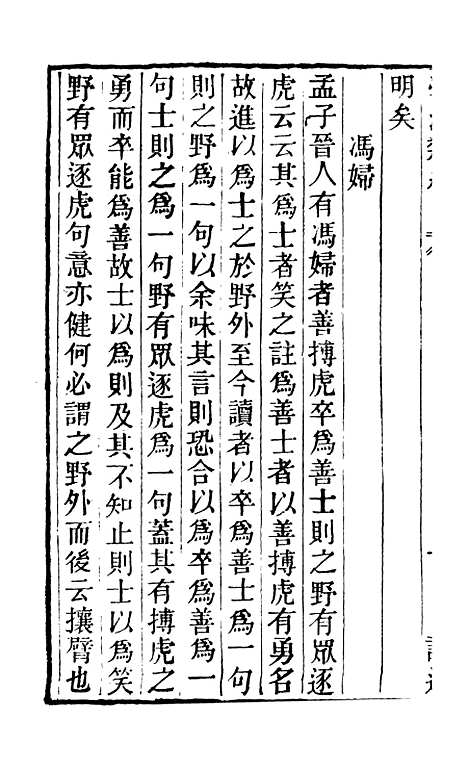 明矣
馮婦
孟子晉人有馮婦者善搏虎卒爲善士則之野有眾逐
虎云云其爲士者笑之註爲善士者以善搏虎有勇名
故進以爲士之於野外至今讀者以卒爲善士爲一句
則之野爲一句以余味其言則恐合以爲卒爲善爲一
句士則之爲一句野有眾逐虎爲一句蓋其有搏虎之
勇而卒能爲善故士以爲則及其不知止則士以爲笑
野有眾逐虎句意亦健何必謂之野外而後云攘臂也